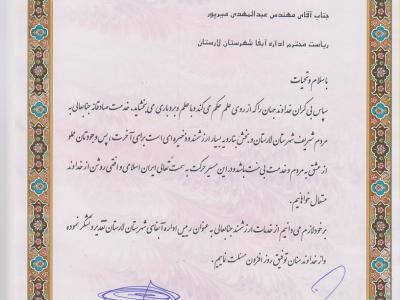 جناب آقای مهندس عبدالمهدی میرپور
ریاست محترم اداره آبفا شهرستان لارستان
باسلام و تحیات
سپاس بی کران خداوند جهان را که از روی علم حکم می کند و با حلم و بردباری می بخشاید، خدمت صادقانه جنابعالی به
مردم شریف شهرستان لارستان و بخش بنارویه بسیار ارزشمند و ذخیره ای است برای آخرت، پس وجودتان مملو
از عشق به مردم و خدمت بی منت باشد و در این مسیر حرکت به سمت تعالی ایران اسلامی و افقی روشن از خداوند
متعال خواهانیم.
برخود لازم می دانیم از خدمات ارزشمند جنابعالی به عنوان رییس اداره آبفای شهرستان لارستان تقدیر و تشکر نموده
و از خداوند منان توفیق روز افزون مسئلت نماییم.